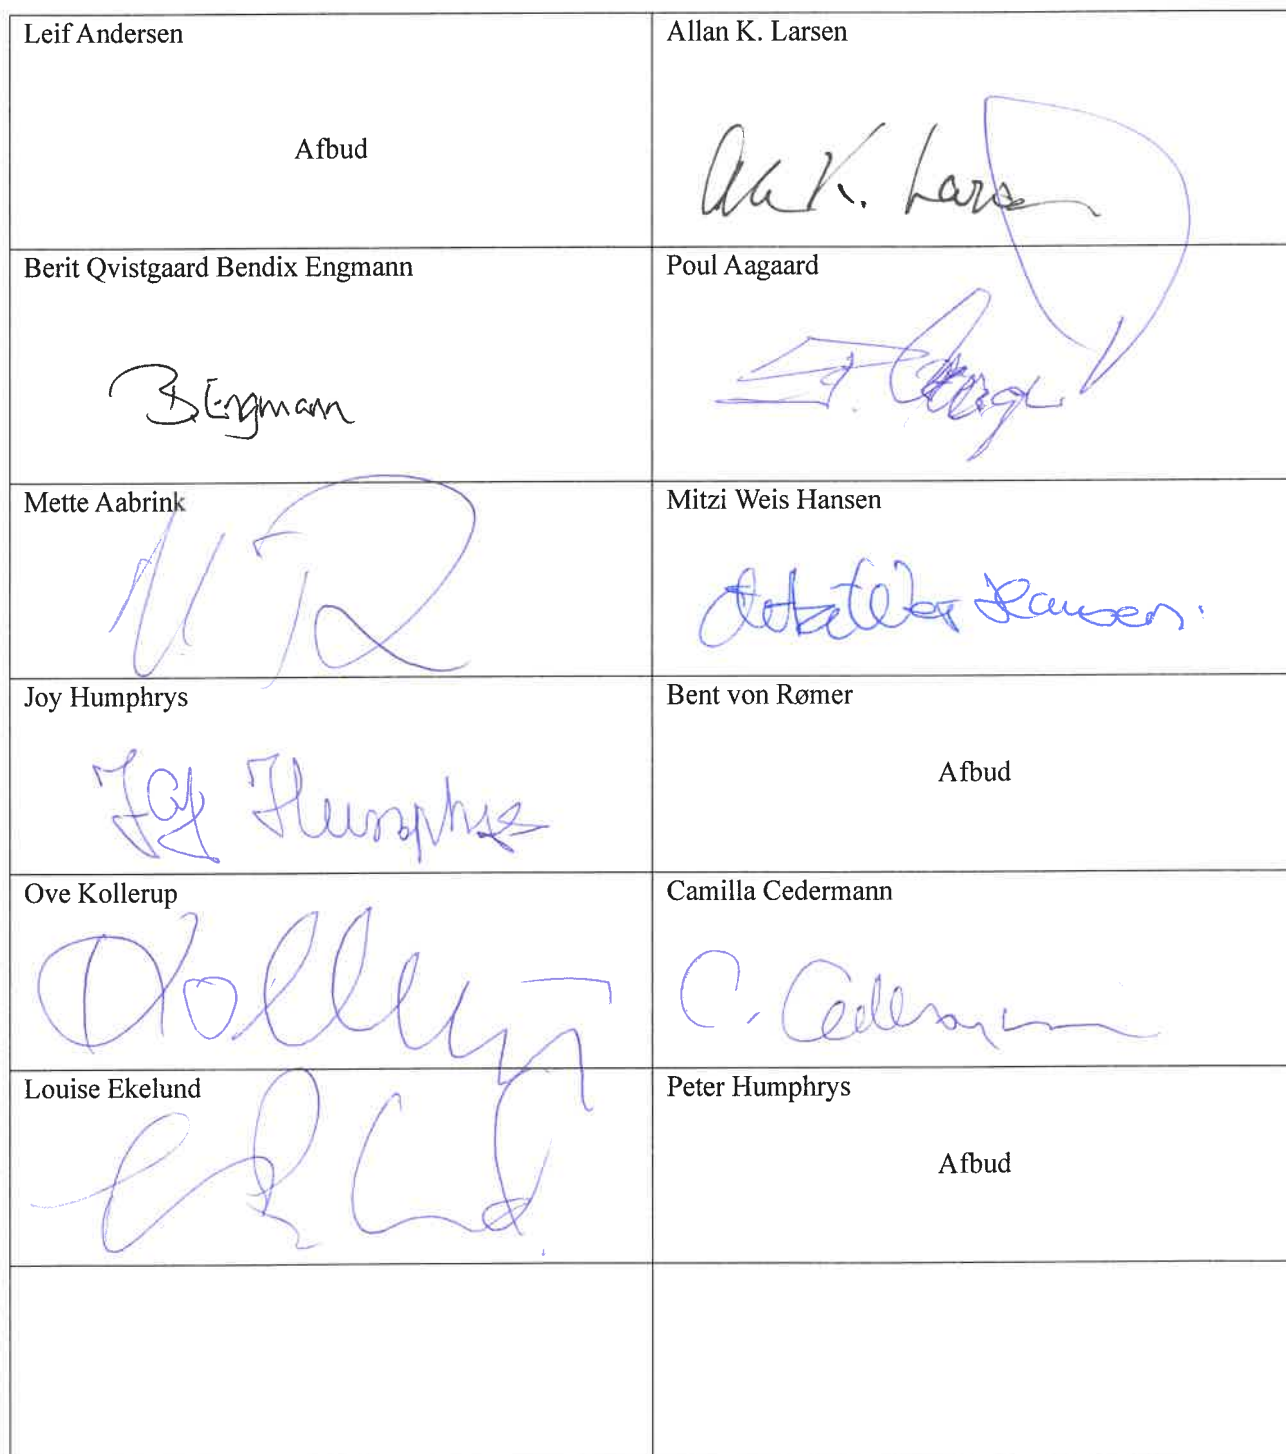 Leif Andersen
Afbud
Allan K. Larsen
K. Larsen
Berit Qvistgaard Bendix Engmann
B Engmann
Poul Aagaard
Mette Aabrink
Mitzi Weis Hansen
Hansen
Joy Humphrys
Joy Humphrys
Bent von Rømer
Afbud
Ove Kollerup
Camilla Cedermann
C. Cedermann
Louise Ekelund
Peter Humphrys
Afbud